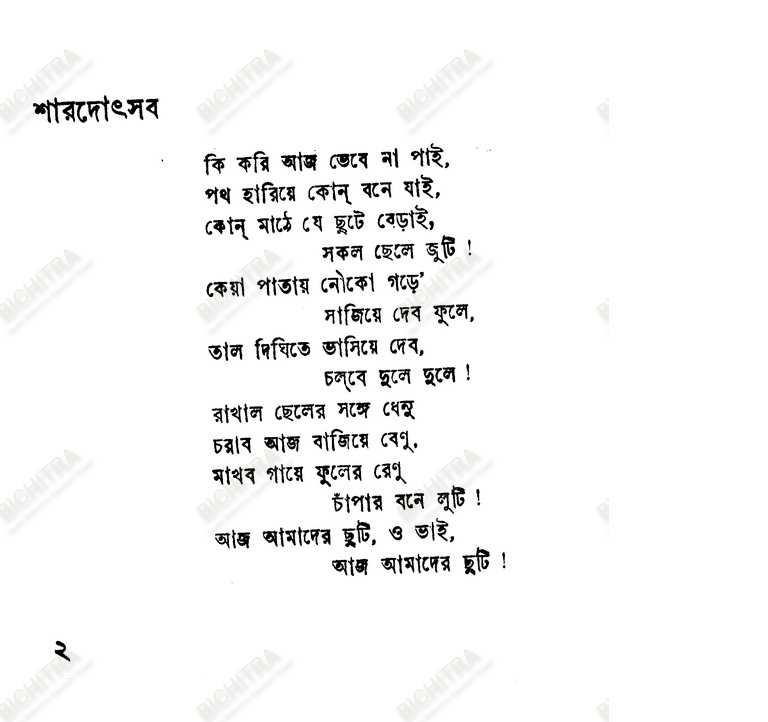 শারদোৎসব
কি করি আজ ভেবে না পাই,
পথ হারিয়ে কোন্ বনে যাই,
কোন্ মাঠে যে ছুটে বেড়াই,
সকল ছেলে জুটি !
কেয়া পাতায় নৌকো গড়ে’
সাজিয়ে দেব ফুলে,
তাল দিঘিতে ভাসিয়ে দেব,
চল্‌বে দুলে দুলে !
রাখাল ছেলের সঙ্গে ধেনু
চরাব আজ বাজিয়ে বেণু,
মাখব গায়ে ফুলের রেণু
চাঁপার বনে লুটি !
আজ আমাদের ছুটি, ও ভাই,
আজ আমাদের ছুটি !
২
BICHITRA